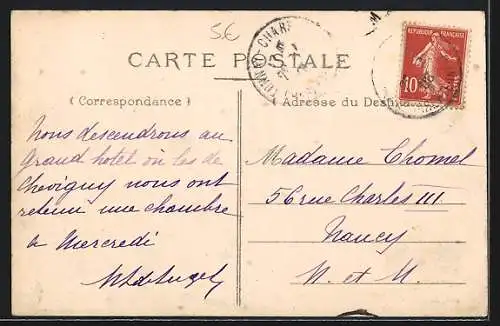 5€
CARTE POSTALE
(Correspondance)
Adresse du Destinataire
RÉPUBLIQUE FRANÇAISE
10
Nous descendrons au
Grand hotel où les de
Chevigny nous ont
retenu une chambre
à Mercredi
Madame Chomel
56 rue Charles III
Nancy
M. et M.